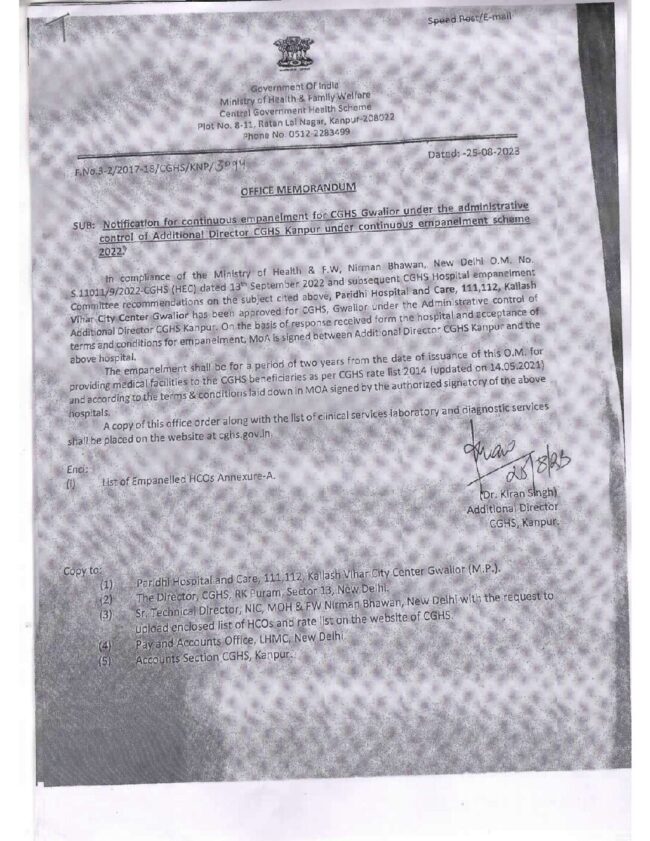 Speed Post/E-mail
Government Of India
Ministry of Health & Family Welfare
Central Government Health Scheme
Plot No. 8-11, Ratan Lal Nagar, Kanpur-208022
Phone No. 0512-2283499
F.No.3-2/2017-18/CGHS/KNP/3094
Dated: -25-08-2023
OFFICE MEMORANDUM
SUB: Notification for continuous empanelment for CGHS Gwalior under the administrative
control of Additional Director CGHS Kanpur under continuous empanelment scheme
2022.
In compliance of the Ministry of Health & F.W, Nirman Bhawan, New Delhi O.M. No.
S.11011/9/2022-CGHS (HEC) dated 13th September 2022 and subsequent CGHS Hospital empanelment
Committee recommendations on the subject cited above, Paridhi Hospital and Care, 111,112, Kailash
Vihar City Center Gwalior has been approved for CGHS, Gwalior under the Administrative control of
Additional Director CGHS Kanpur. On the basis of response received form the hospital and acceptance of
terms and conditions for empanelment, MoA is signed between Additional Director CGHS Kanpur and the
above hospital.
The empanelment shall be for a period of two years from the date of issuance of this O.M. for
providing medical facilities to the CGHS beneficiaries as per CGHS rate list 2014 (updated on 14.05.2021)
and according to the terms & conditions laid down in MOA signed by the authorized signatory of the above
hospitals.
A copy of this office order along with the list of clinical services laboratory and diagnostic services
shall be placed on the website at cghs.gov.in.
Encl:
(i) List of Empanelled HCOs Annexure-A.
25/8/23
(Dr. Kiran Singh)
Additional Director
CGHS, Kanpur.
Copy to:
(1) Paridhi Hospital and Care, 111,112, Kailash Vihar City Center Gwalior (M.P.).
(2) The Director, CGHS, RK Puram, Sector 13, New Delhi.
(3) Sr. Technical Director, NIC, MOH & FW Nirman Bhawan, New Delhi with the request to
upload enclosed list of HCOs and rate list on the website of CGHS.
(4) Pay and Accounts Office, LHMC, New Delhi
(5) Accounts Section CGHS, Kanpur.